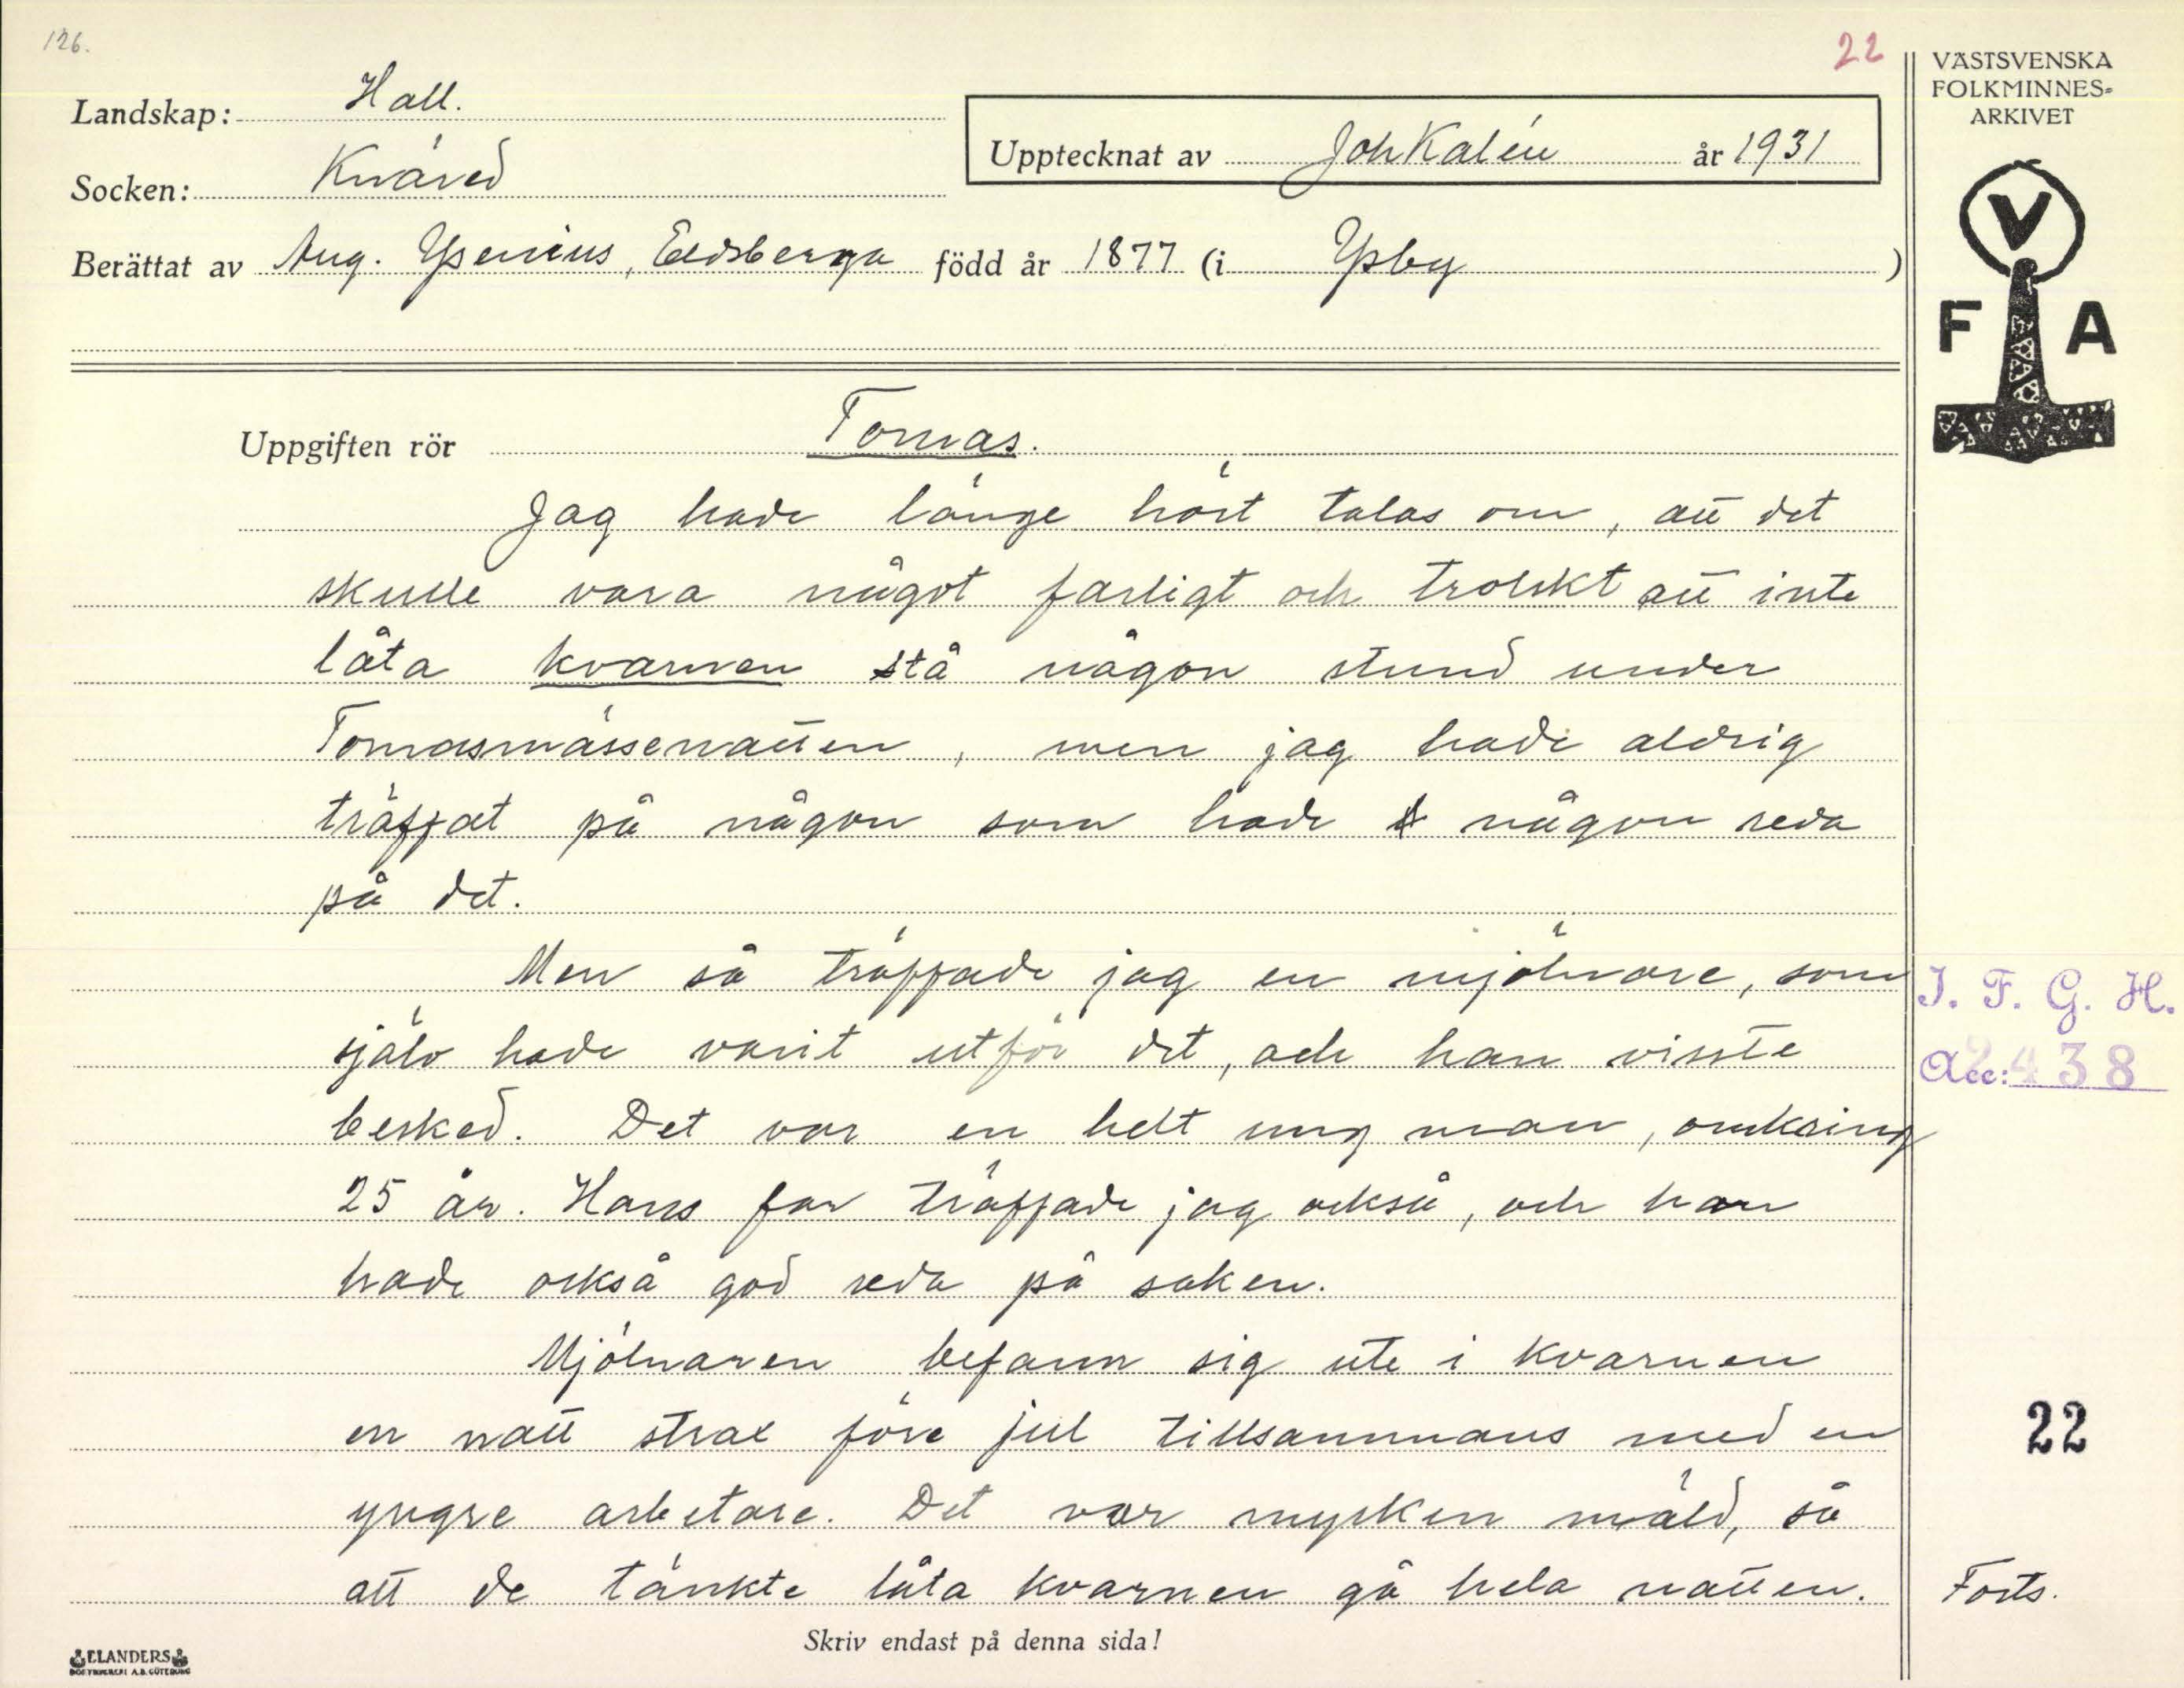 126.
22
Landskap: Hall.
Upptecknat av Joh Kalén år 1931
Socken: Knäred
Berättat av Aug. Ysenius, Eldsberga född år 1877 (i Ysby )
Uppgiften rör Tomas.
Jag hade länge hört talas om, att det
skulle vara något farligt och trolskt att inte
låta kvarnen stå någon stund under
Tomasmässenatten, men jag hade aldrig
träffat på någon som hade någon reda
på det.
Men så träffade jag en mjölnare, som
själv hade varit utför det, och han visste
besked. Det var en helt ung man, omkring
25 år. Hans far träffade jag också, och han
hade också god reda på saken.
Mjölnaren befann sig ute i kvarnen
en natt strax före jul tillsammans med en
yngre arbetare. Det var mycken mäld, så
att de tänkte låta kvarnen gå hela natten.
Skriv endast på denna sida!
ELANDERS
BOKTRYCKERI A.B. GÖTEBORG
VÄSTSVENSKA
FOLKMINNES-
ARKIVET
V
F A
I. F. G. H.
Acc: 2438
22
Forts.